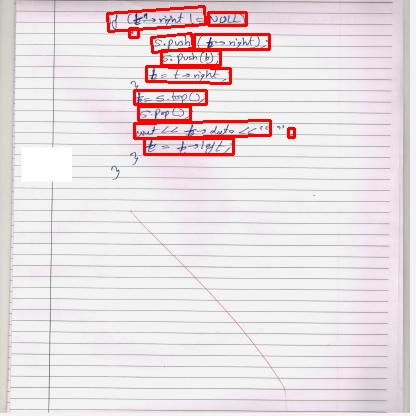 if (t→right != NULL)
{
s.push(t→right);
s.push(t);
t = t→right;
}
t = s.top();
s.pop();
cout << t→data << " ";
t = t→left;
}
}